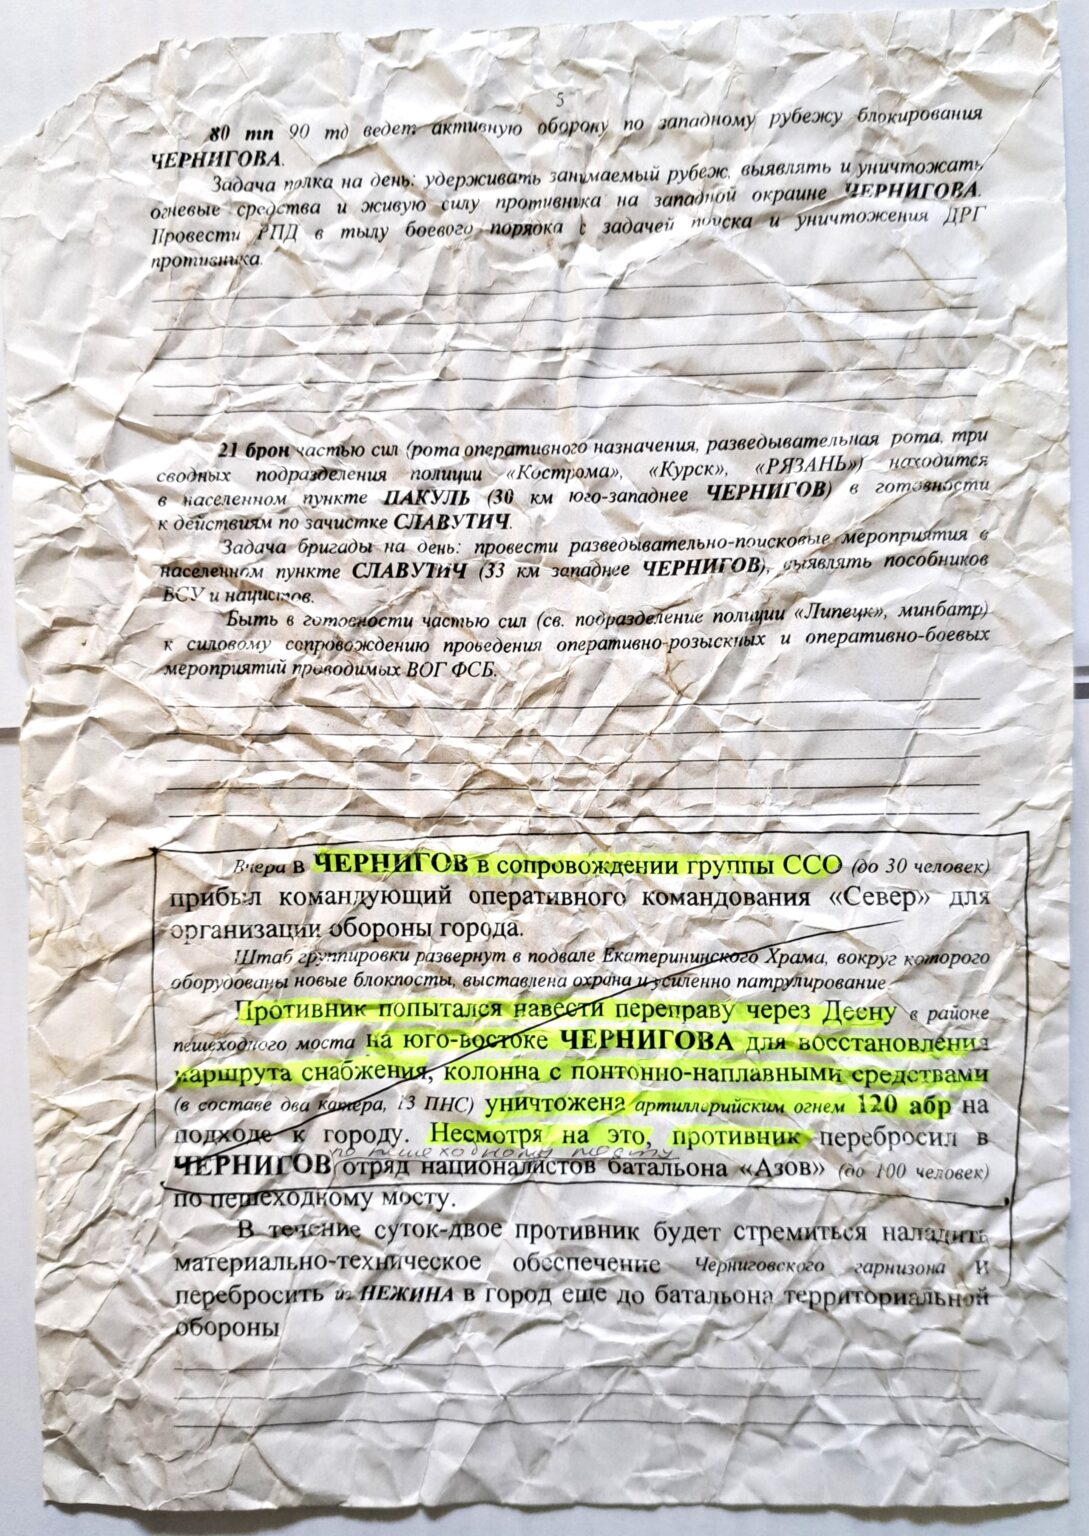 5
80 тп 90 тд ведет активную оборону по западному рубежу блокирования
ЧЕРНИГОВА.
Задача полка на день: удерживать занимаемый рубеж, выявлять и уничтожать
огневые средства и живую силу противника на западной окраине ЧЕРНИГОВА.
Провести РПД в тылу боевого порядка с задачей поиска и уничтожения ДРГ
противника.
21 брон частью сил (рота оперативного назначения, разведывательная рота, три
сводных подразделения полиции «Кострома», «Курск», «РЯЗАНЬ») находится
в населенном пункте ПАКУЛЬ (30 км юго-западнее ЧЕРНИГОВ) в готовности
к действиям по зачистке СЛАВУТИЧ.
Задача бригады на день: провести разведывательно-поисковые мероприятия в
населенном пункте СЛАВУТИЧ (33 км западнее ЧЕРНИГОВ), выявлять пособников
ВСУ и нацистов.
Быть в готовности частью сил (св. подразделение полиции «Липецк», минбатр)
к силовому сопровождению проведения оперативно-розыскных и оперативно-боевых
мероприятий проводимых ВОГ ФСБ.
Вчера в ЧЕРНИГОВ в сопровождении группы ССО (до 30 человек)
прибыл командующий оперативного командования «Север» для
организации обороны города.
Штаб группировки развернут в подвале Екатерининского Храма, вокруг которого
оборудованы новые блокпосты, выставлена охрана и усиленно патрулирование
Противник попытался навести переправу через Десну в районе
пешеходного моста на юго-востоке ЧЕРНИГОВА для восстановления
маршрута снабжения, колонна с понтонно-наплавными средствами
(в составе два катера, 13 ПНС) уничтожена артиллерийским огнем 120 абр на
подходе к городу. Несмотря на это, противник перебросил в
по пешеходному мосту
ЧЕРНИГОВ отряд националистов батальона «Азов» (до 100 человек)
по пешеходному мосту.
В течение суток-двое противник будет стремиться наладить
материально-техническое обеспечение Черниговского гарнизона и
перебросить из НЕЖИНА в город еще до батальона территориальной
обороны